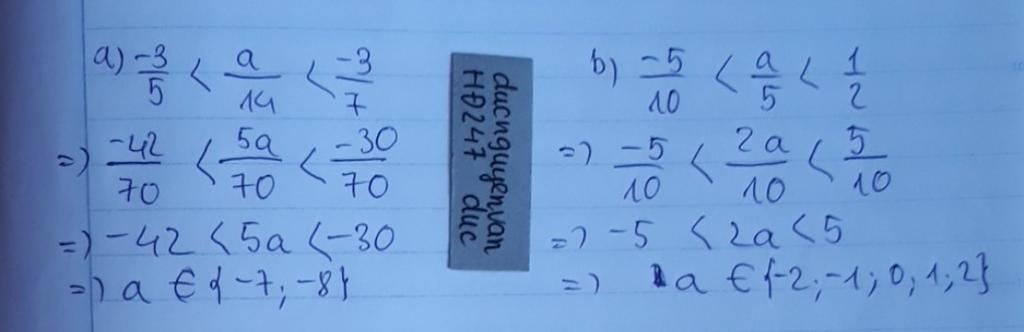 a) -3/5 < a/14 < -3/7
=) -42/70 < 5a/70 < -30/70
=) -42 < 5a < -30
=) a ∈ {-7; -8}
ducnguyenvan
HĐ247 duc
b) -5/10 < a/5 < 1/2
=) -5/10 < 2a/10 < 5/10
=) -5 < 2a < 5
=) a ∈ {-2; -1; 0; 1; 2}